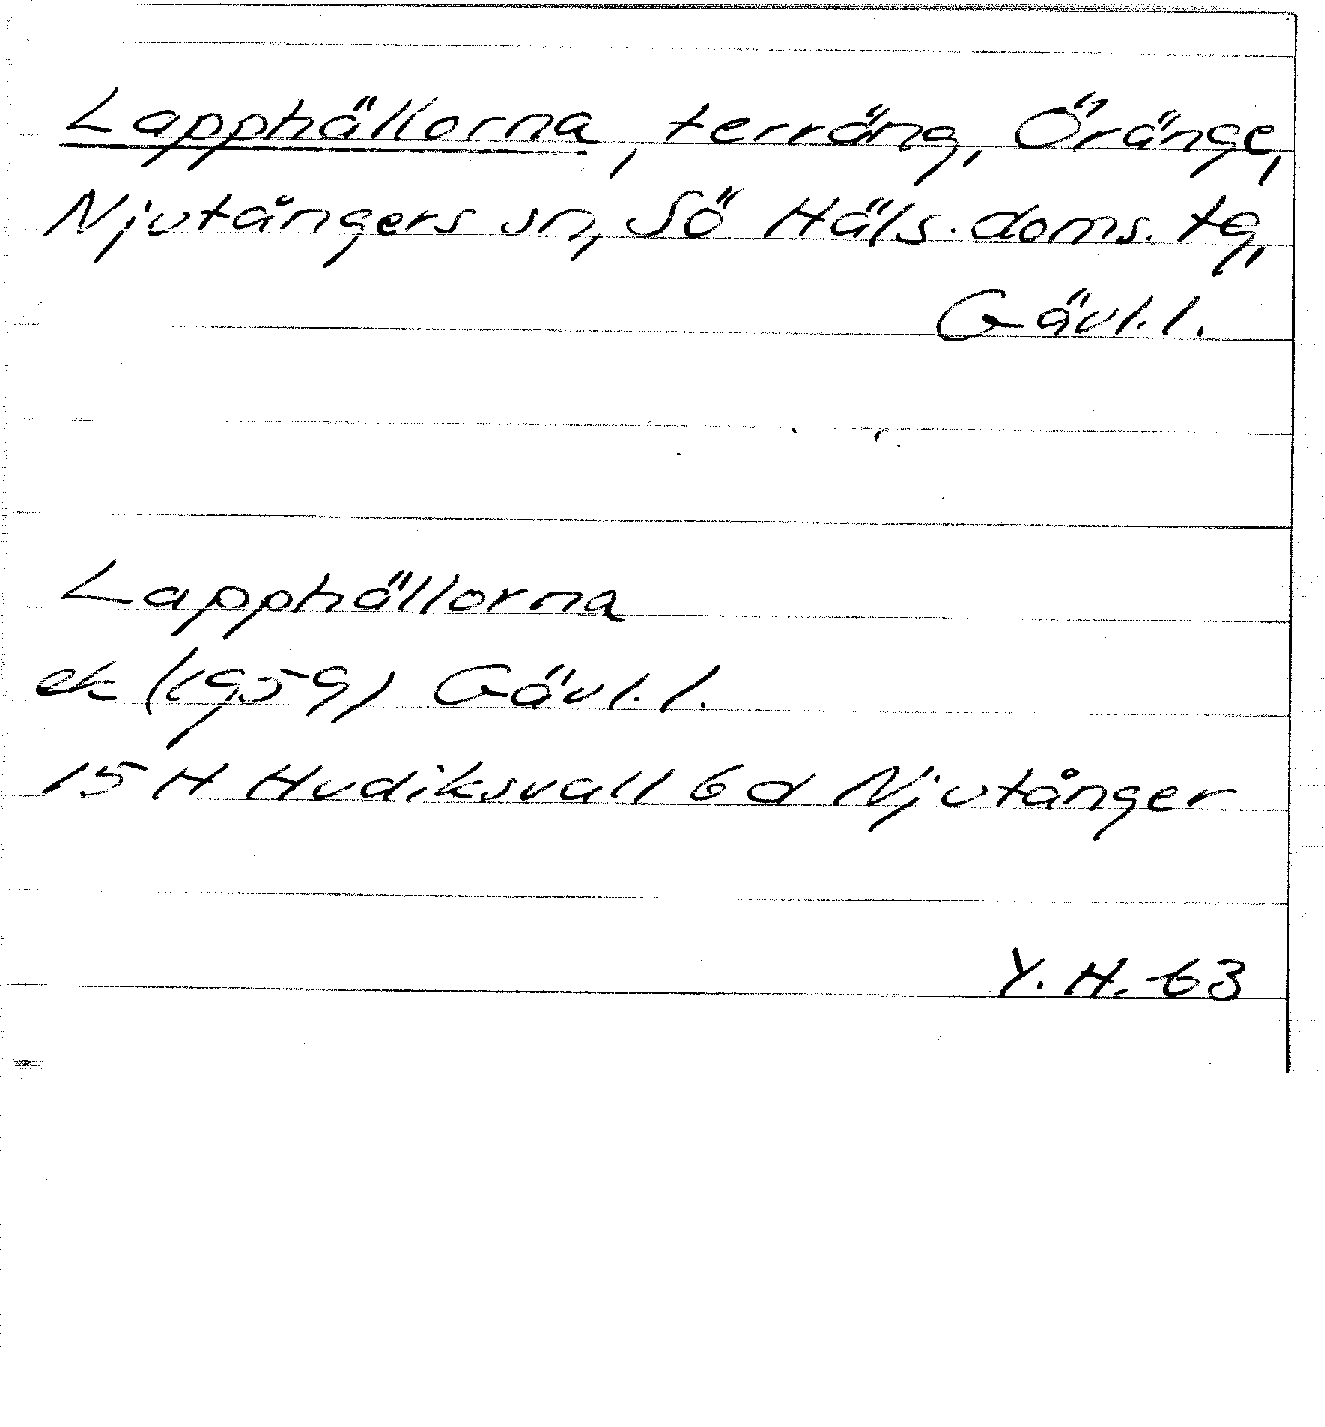 Lapphällorna, terräng, Öränge,
Njutångers sn, Sö Häls. doms. tg,
Gävl. l.
Lapphällorna
ek (1959) Gävl. l.
15 H Hudiksvall 6 d Njutånger
Y. H. -63